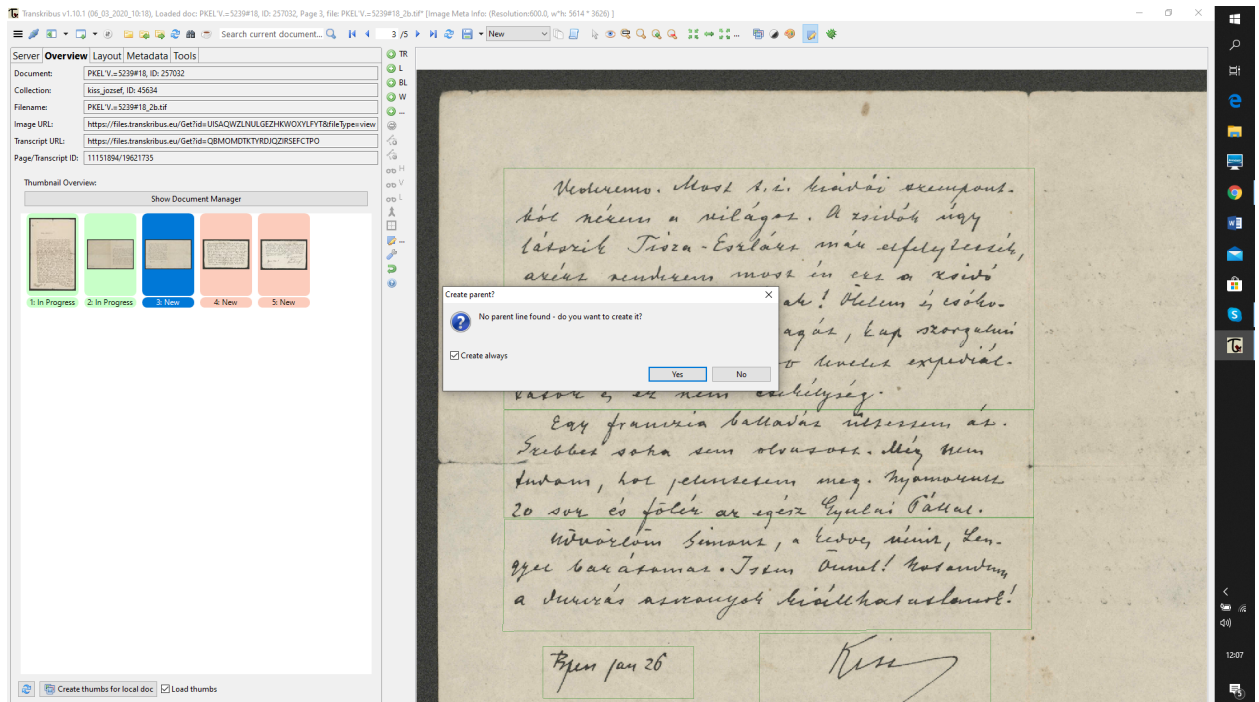 Transkribus v1.10.1 (06_03_2020_10:18), Loaded doc: PKEL'V.=5239#18, ID: 257032, Page 3, file: PKEL'V.=5239#18_2b.tif* [Image Meta Info: (Resolution:600.0, w*h: 5614 * 3626) ]
Search current document...
3 /5
New
Server Overview Layout Metadata Tools
Document: PKEL'V.=5239#18, ID: 257032
Collection: kiss_jozsef, ID: 45634
Filename: PKEL'V.=5239#18_2b.tif
Image URL: https://files.transkribus.eu/Get?id=UISAQWZLNULGEZHKWOXYLFYT&fileType=view
Transcript URL: https://files.transkribus.eu/Get?id=QBMOMDTKTYRDJQZIRSEFCTPO
Page/Transcript ID: 11151894/19621735
Thumbnail Overview:
Show Document Manager
1: In Progress 2: In Progress 3: New 4: New 5: New
Create thumbs for local doc Load thumbs
TR
L
BL
W
H
V
L
Create parent?
No parent line found - do you want to create it?
Create always
Yes No
Vederemo. Most t.i. kiadói szempont-
ból nézem a világot. A zsidók úgy
látszik Tisza-Eszlárt már elfelejtették,
azért rendezem most én ezt a zsidó
ak! Ölelem és csóko-
agát, kap szorgalmi
levelet expediál-
és ez nem csekélység.
Egy franczia balladát ültettem át.
Szebbet soha sem olvasott. Még nem
tudom, hol jelentetem meg. Nyomorult
20 sor és fölér az egész Gyulai Pállal.
Üdvözlöm Simont, a kedves nénit, Len-
gyel barátomat. Isten Önnel!
a asszonyok kiállhatatlanok!
Bpen jan 26
Kiss
12:07